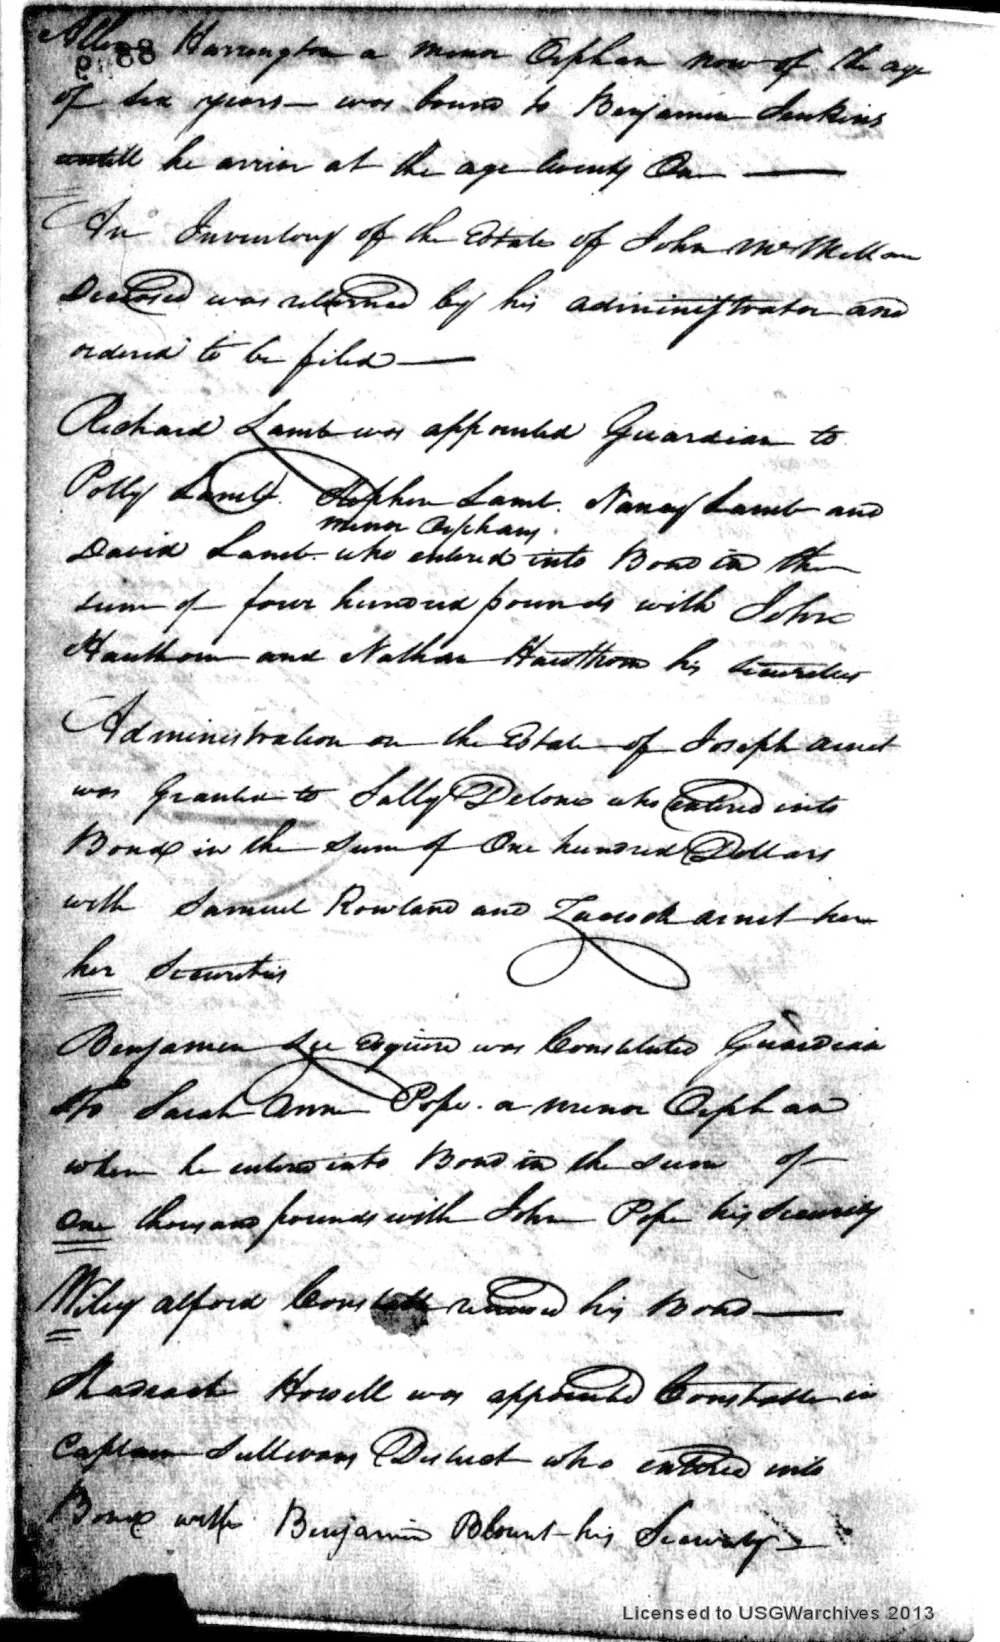 Allen Harrington a minor Orphan now of the age
88
of six years was bound to Benjamin Jenkins
untill he arrive at the age twenty One
An Inventory of the Estate of John McMillan
Deceased was returned by his administrator and
ordered to be filed
Richard Lamb was appointed Guardian to
Polly Lamb. Stephen Lamb. Nancy Lamb and
minor Orphans
David Lamb. who entered into Bond in the
sum of four hundred pounds with John
Hawthorn and Nathan Hawthorn his securities
Administration on the Estate of Joseph Arnet
was Granted to Sally Delone who entered into
Bond in the Sum of One hundred Dollars
with Samuel Rowland and Zadock Arnet her
her Securities
Benjamin Lee Esquire was Constituted Guardian
To Sarah Ann Pope. a minor Orphan
when he entered into Bond in the sum of
One thousand pounds with John Pope his Security
Wiley Alford Constable renewed his Bond
Shadrach Howell was appointed Constable in
Captain Sullivans District who entered into
Bond with Benjamin Blount his Security
Licensed to USGWarchives 2013